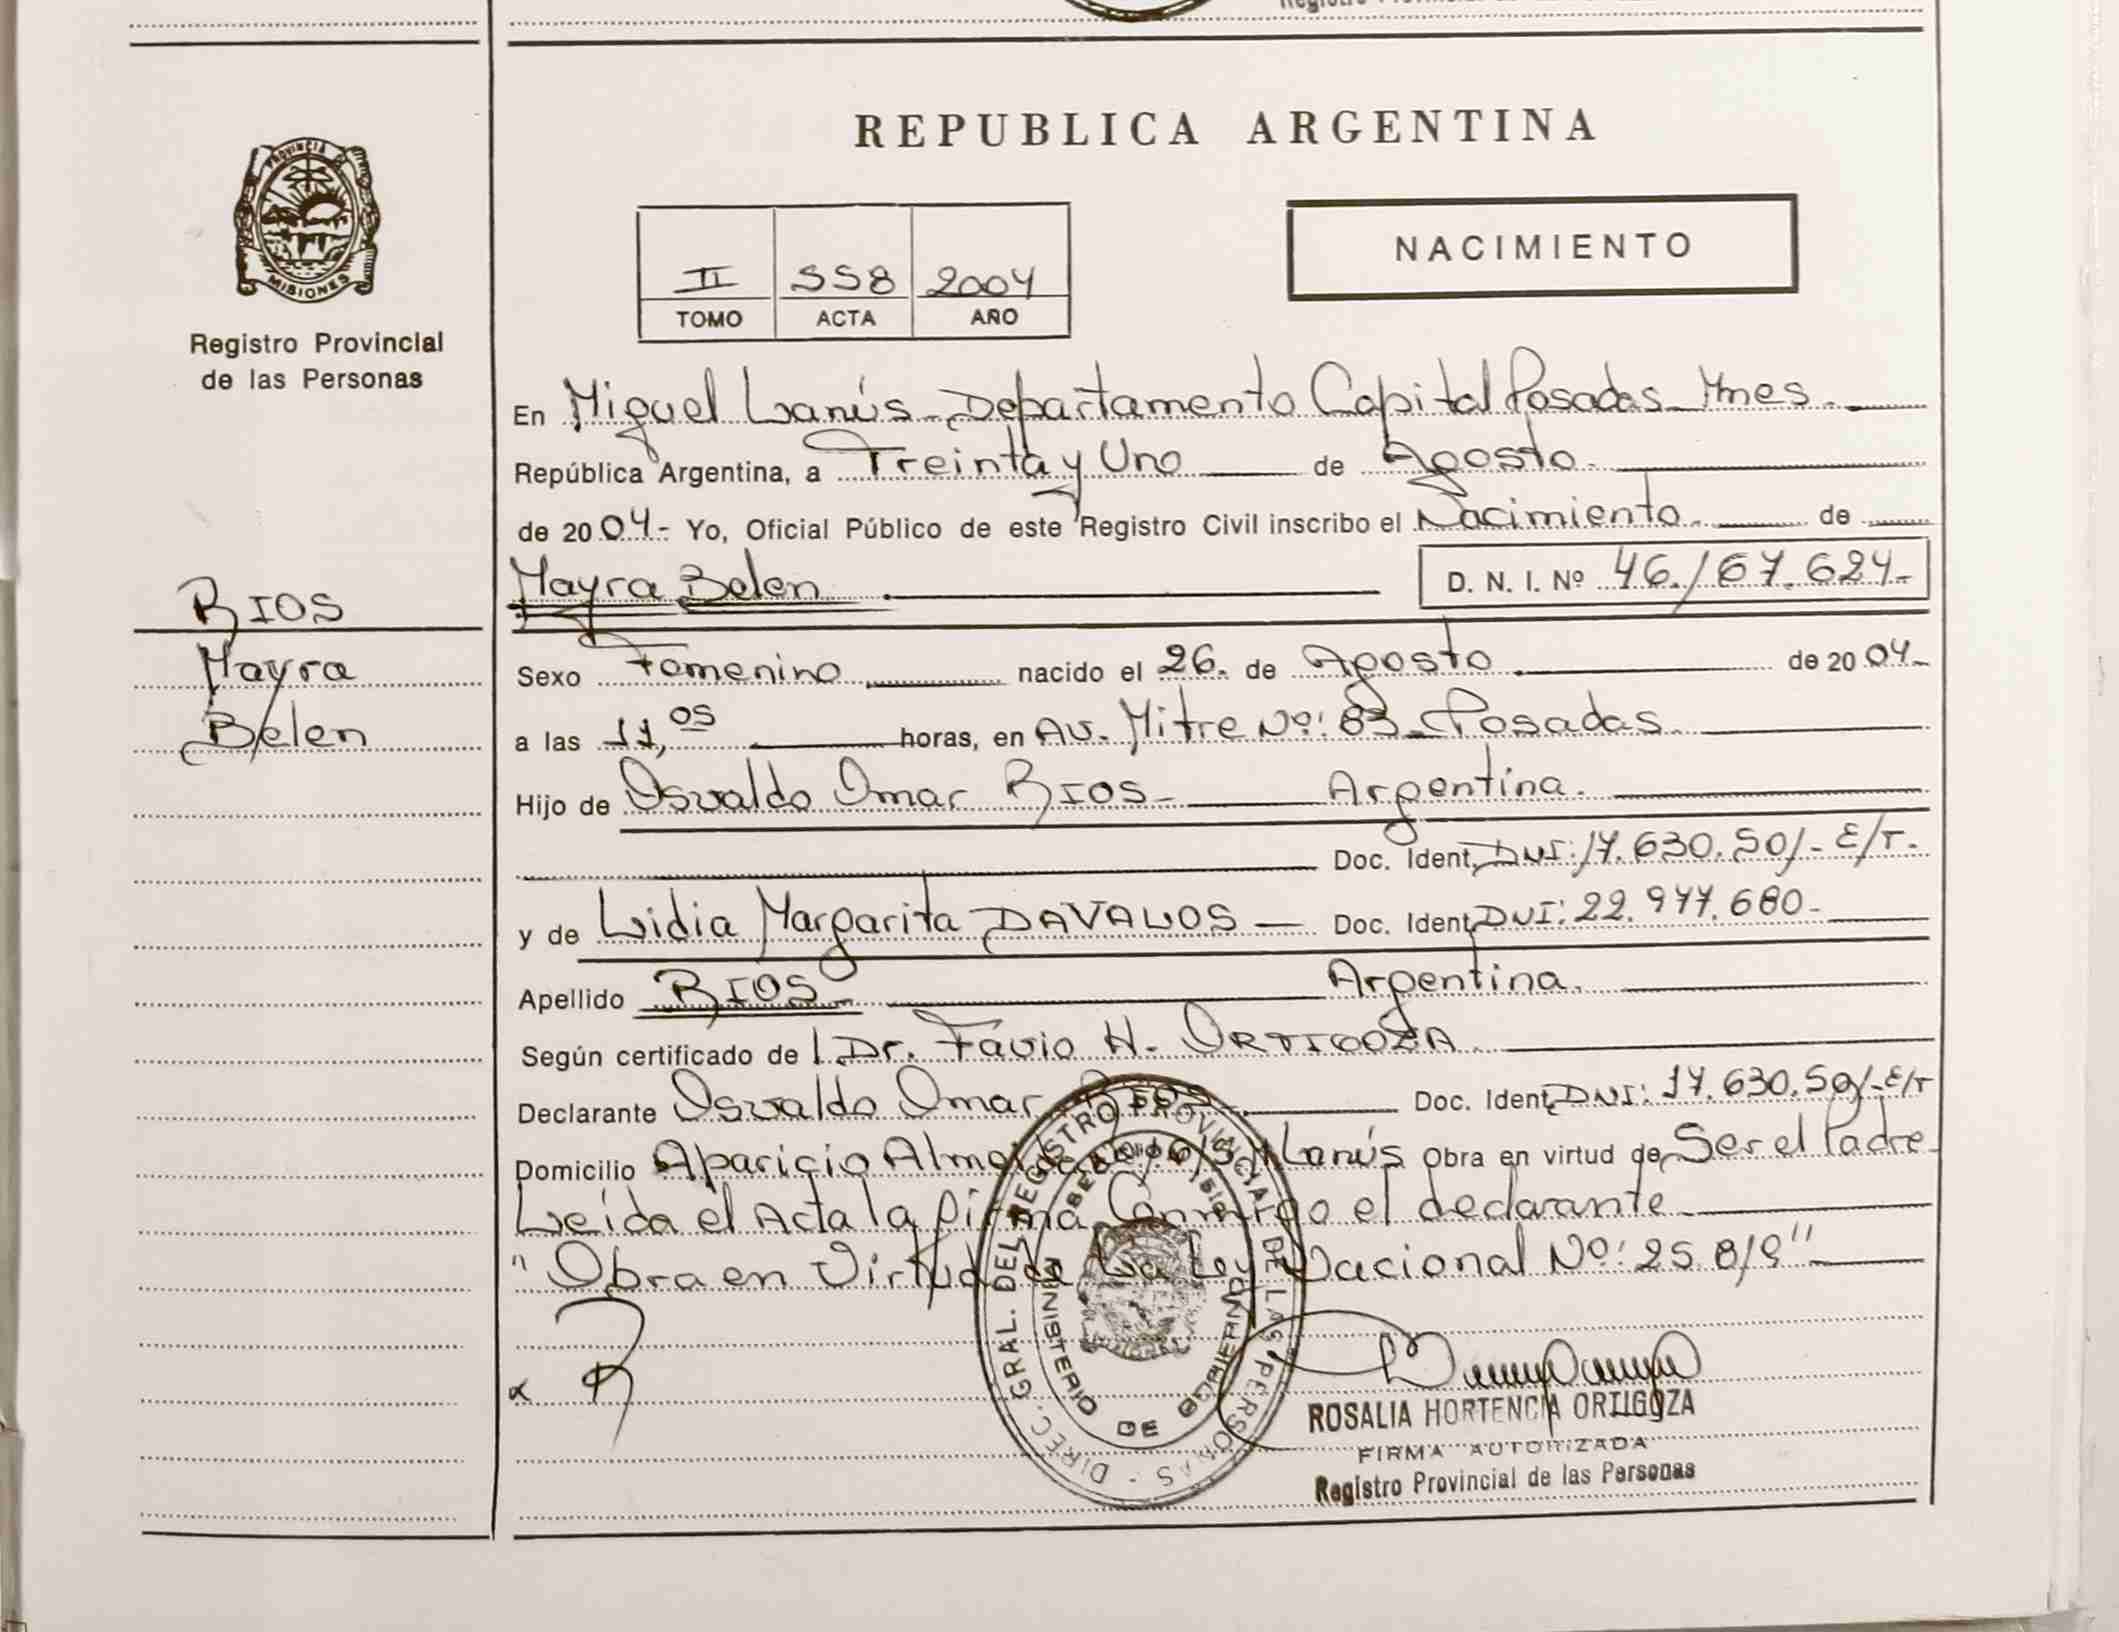 REPUBLICA ARGENTINA
PROVINCIA DE
MISIONES
Registro Provincial
de las Personas
NACIMIENTO
II 558 2004
TOMO ACTA AÑO
En Miguel Lanús Departamento Capital Posadas Mnes.
República Argentina, a Treinta y Uno de Agosto.
de 2004.- Yo, Oficial Público de este Registro Civil inscribo el Nacimiento de
Mayra Belen D. N. I. Nº 46.167.624.-
RIOS
Mayra
Belen
Sexo Femenino nacido el 26. de Agosto de 2004.-
a las 11,05 horas, en Av. Mitre Nº: 83 Posadas
Hijo de Osvaldo Omar RIOS- Argentina.
Doc. Ident. DNI: 17.630.501- E/T.
y de Lidia Margarita DAVALOS — Doc. Ident. DNI: 22.977.680-
Apellido RIOS- Argentina.
Según certificado de l Dr. Favio H. ORTIGOZA
Declarante Osvaldo Omar RIOS Doc. Ident. DNI: 17.630.501-E/T
Domicilio Aparicio Lanús Obra en virtud de Ser el Padre
Leída el Acta la firma Conmigo el declarante
"Obra en Virtud de La Ley Nacional Nº: 25.819"
DIREC. GRAL. DEL REGISTRO PROVINCIAL DE LAS PERSONAS -
MINISTERIO DE GOBIERNO
ROSALIA HORTENCIA ORTIGOZA
FIRMA AUTORIZADA
Registro Provincial de las Personas